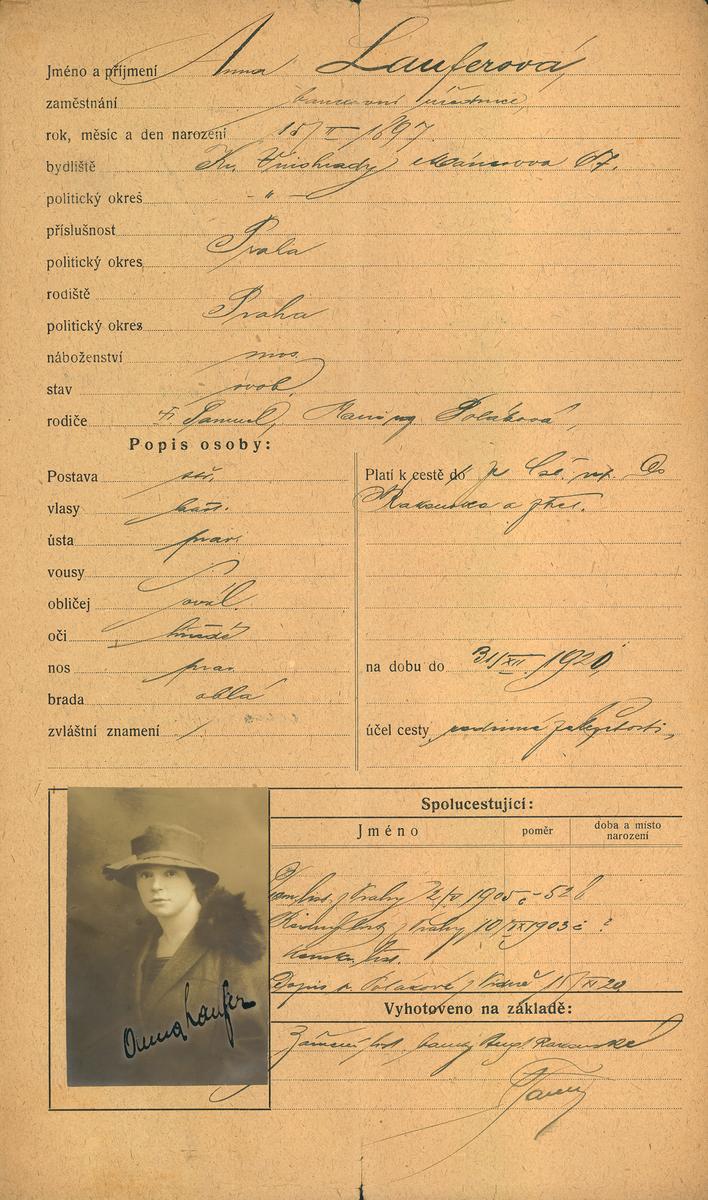 Jméno a příjmení Anna Lauferová,
zaměstnání bankovní úřednice,
rok, měsíc a den narození 15/II 1897.
bydliště Kr. Vinohrady, Mánesova 67.
politický okres - " -
příslušnost
Praha
politický okres
rodiště
Praha
politický okres
náboženství mos.
stav svob.
rodiče Samuel, Polákova,
Popis osoby:
Postava stř.
vlasy kašt.
ústa prav.
vousy
obličej ovál.
oči hnědé
nos prav.
brada oblá
zvláštní znamení /
Platí k cestě do
Rakouska a zpět.
na dobu do 31/XII 1920,
účel cesty rodinné záležitosti,
Spolucestující:
Jméno poměr doba a místo narození
Dom. list z Prahy 1905 č
z Prahy 1903 č ?
Dopis p. Polákové z Vídně XI 20
Vyhotoveno na základě:
Anna Laufer